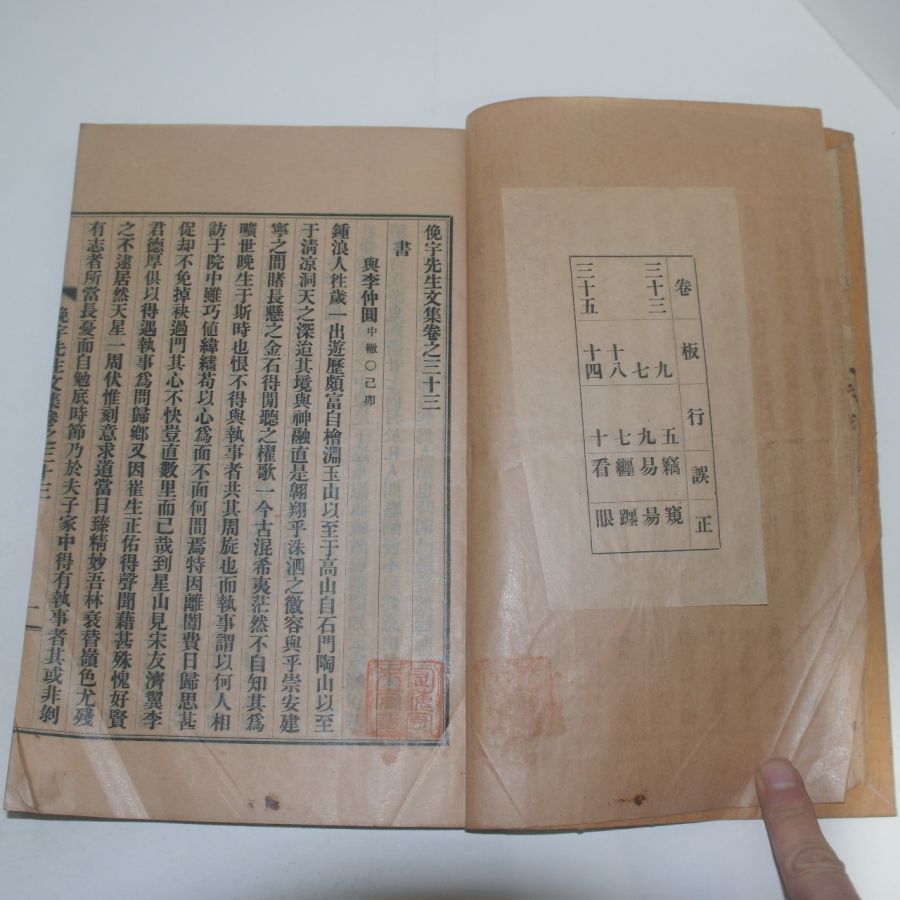 卷 板 行 誤 正
三十三 九 五 竊 窺
七 九 易 昜
十八 七 纏 躔
三十五 十四 十 看 眼
俛宇先生文集卷之三十三
書
與李仲圓 中轍○己卯
鍾浪人徃歲一出遊歷頗富自檜淵玉山以至于高山自石門陶山以至
于淸凉洞天之深造其境與神融直是翶翔乎洙泗之徽容與乎崇安建
寧之間睹長懸之金石得閒聽之櫂歌一今古混希夷茫然不自知其爲
曠世晚生于斯時也恨不得與執事者共其周旋也而執事謂以何人相
訪于院中雖巧値緯繣苟以心爲面不面何間焉特因離闈費日歸思甚
促却不免掉袂過門其心不快豈直數里而已哉到星山見宋友濟翼李
君德厚俱以得遇執事爲問歸鄕又因崔生正佑得聲聞藉甚殊愧好賢
之不逮居然天星一周伏惟刻意求道當日臻精妙吾林衰替嶺色尤殘
有志者所當長憂而自勉底時節乃於夫子家中得有執事者其或非剝
俛宇先生文集卷之三十三 一